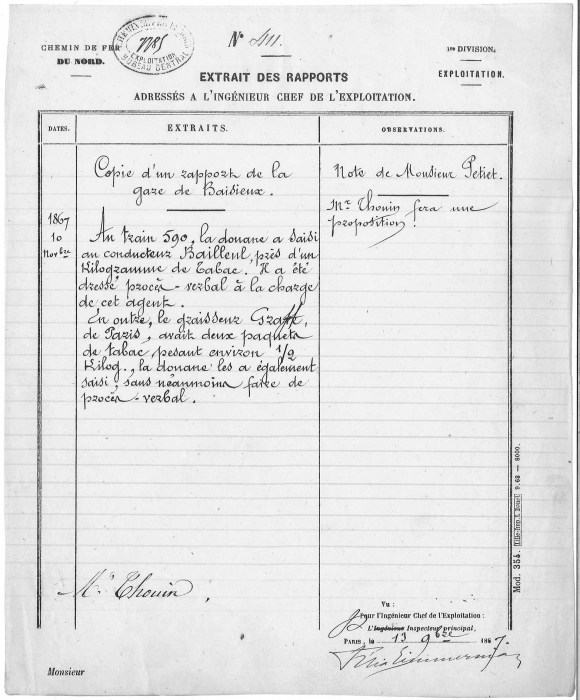 CHEMIN DE FER
DU NORD.
7785
EXPLOITATION
BUREAU CENTRAL
N° 411.
1re DIVISION,
EXPLOITATION.
EXTRAIT DES RAPPORTS
ADRESSÉS A L'INGÉNIEUR CHEF DE L'EXPLOITATION.
DATES.
EXTRAITS.
OBSERVATIONS.
Copie d'un rapport de la
gare de Baisieux.
1867
10
Novbre
Au train 590, la douane a saisi
au conducteur Bailleul, près d'un
Kilogramme de Tabac. Il a été
dressé procès-verbal à la charge
de cet agent.
En outre, le graisseur
de Paris, avait deux paquets
de tabac, pesant environ 1/2
Kilog., la douane les a également
saisi, sans néanmoins faire de
procès-verbal.
Note de Monsieur Petiet.
Mr Thouin fera une
proposition.
Mr Thouin.
Vu :
Pour l'Ingénieur Chef de l'Exploitation :
L'Ingénieur Inspecteur principal,
PARIS, le 13 9bre 1867.
Monsieur
Mod. 354. 9.63 — 8000.